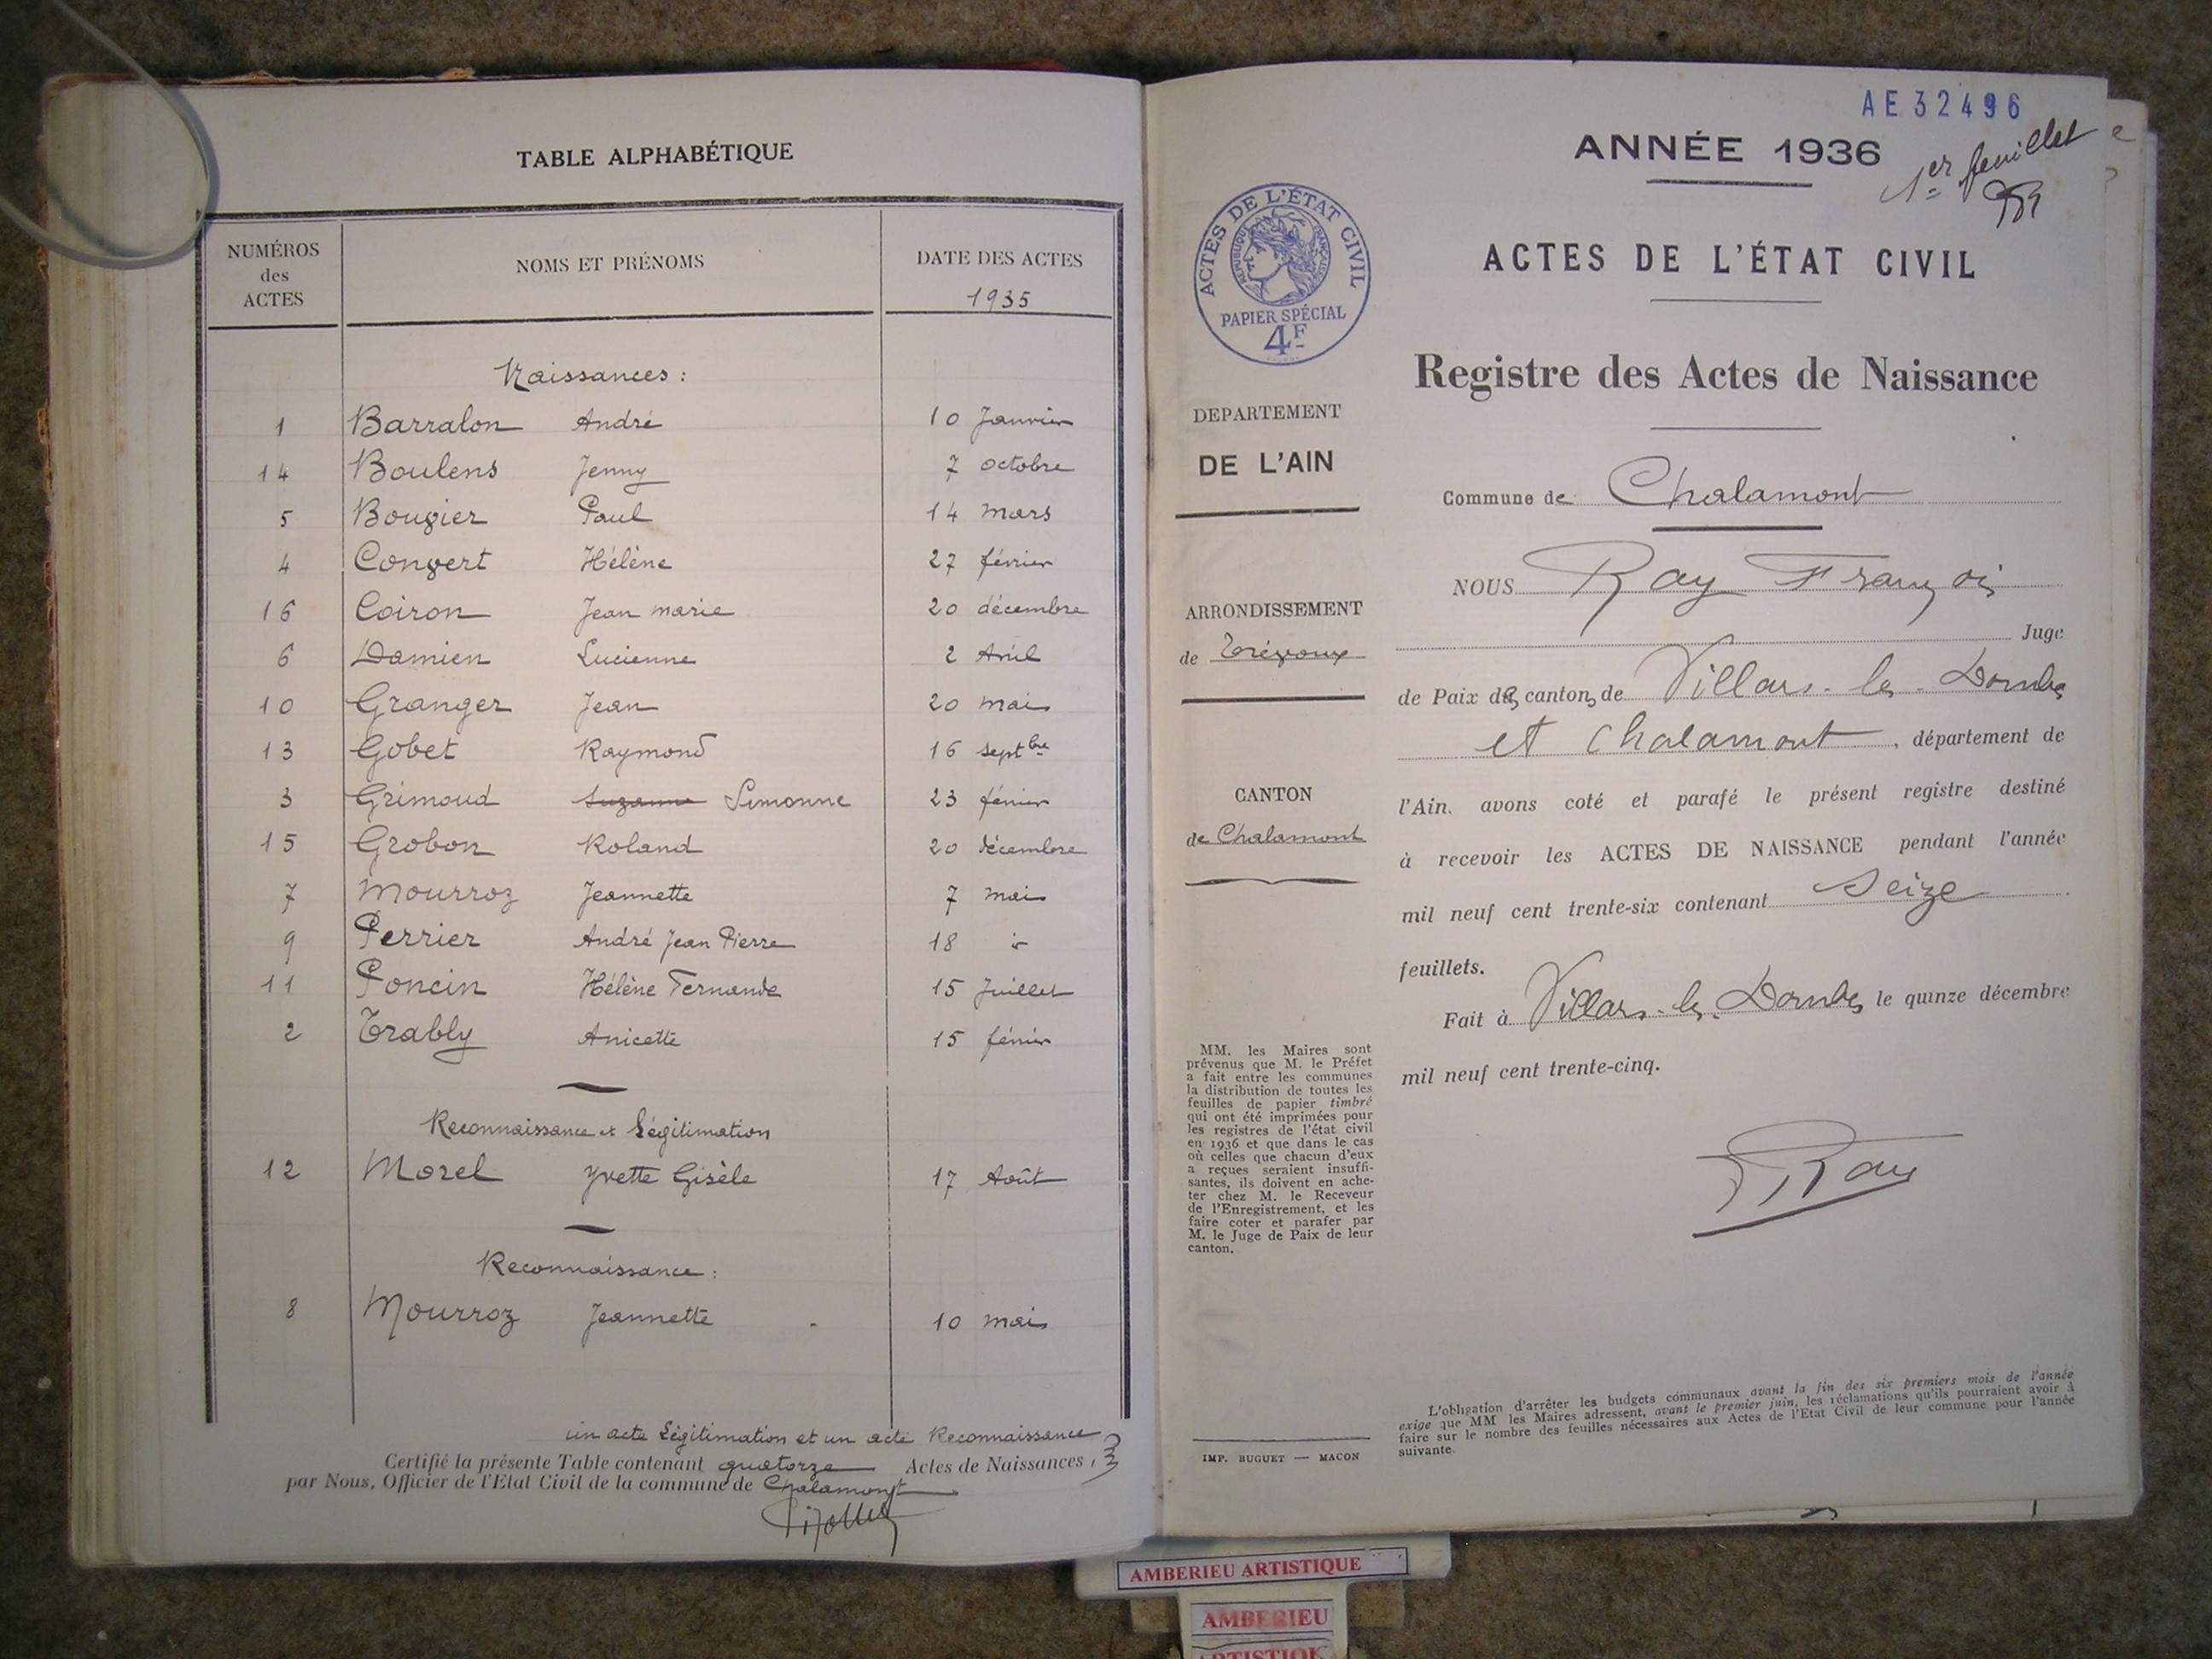 TABLE ALPHABÉTIQUE
NUMÉROS des ACTES NOMS ET PRÉNOMS DATE DES ACTES 1935
Naissances :
1 Barralon André 10 Janvier
14 Boulens Jenny 7 octobre
5 Bougier Paul 14 mars
4 Convert Hélène 27 février
16 Coiron Jean marie 20 décembre
6 Damien Lucienne 2 Avril
10 Granger Jean 20 mai
13 Gobet Raymond 16 septbre
3 Grimoud Suzanne Simonne 23 février
15 Grobon Roland 20 décembre
7 Mourroz Jeannette 7 mai
9 Perrier André Jean Pierre 18
11 Poncin Hélène Fernande 15 Juillet
2 Trably Anicette 15 février
Reconnaissance et Légitimation
12 Morel Yvette Gisèle 17 Août
Reconnaissance :
8 Mourroz Jeannette 10 mai
un acte Légitimation et un acte Reconnaissance
Certifié la présente Table contenant quatorze Actes de Naissances,
par Nous, Officier de l'Etat Civil de la commune de Chalamont
AE32496
ANNÉE 1936
1er feuillet
ACTES DE L'ÉTAT CIVIL
ACTES DE L'ÉTAT CIVIL
RÉPUBLIQUE FRANÇAISE
PAPIER SPÉCIAL
4F
Registre des Actes de Naissance
DEPARTEMENT
DE L'AIN
Commune de Chalamont
ARRONDISSEMENT
de Trévoux
CANTON
de Chalamont
NOUS Ray François
Juge
de Paix des cantons de Villars-les-Dombes
et Chalamont, département de
l'Ain, avons coté et parafé le présent registre destiné
à recevoir les ACTES DE NAISSANCE pendant l'année
mil neuf cent trente-six contenant seize
feuillets.
Fait à Villars-les-Dombes le quinze décembre
mil neuf cent trente-cinq.
Ray
MM. les Maires sont
prévenus que M. le Préfet
a fait entre les communes
la distribution de toutes les
feuilles de papier timbré
qui ont été imprimées pour
les registres de l'état civil
en 1936 et que dans le cas
où celles que chacun d'eux
a reçues seraient insuffi-
santes, ils doivent en ache-
ter chez M. le Receveur
de l'Enregistrement, et les
faire coter et parafer par
M. le Juge de Paix de leur
canton.
IMP. BUGUET — MACON
L'obligation d'arrêter les budgets communaux avant la fin des six premiers mois de l'année
exige que MM les Maires adressent, avant le premier juin, les réclamations qu'ils pourraient avoir à
faire sur le nombre des feuilles nécessaires aux Actes de l'Etat Civil de leur commune pour l'année
suivante.
AMBERIEU ARTISTIQUE
AMBERIEU